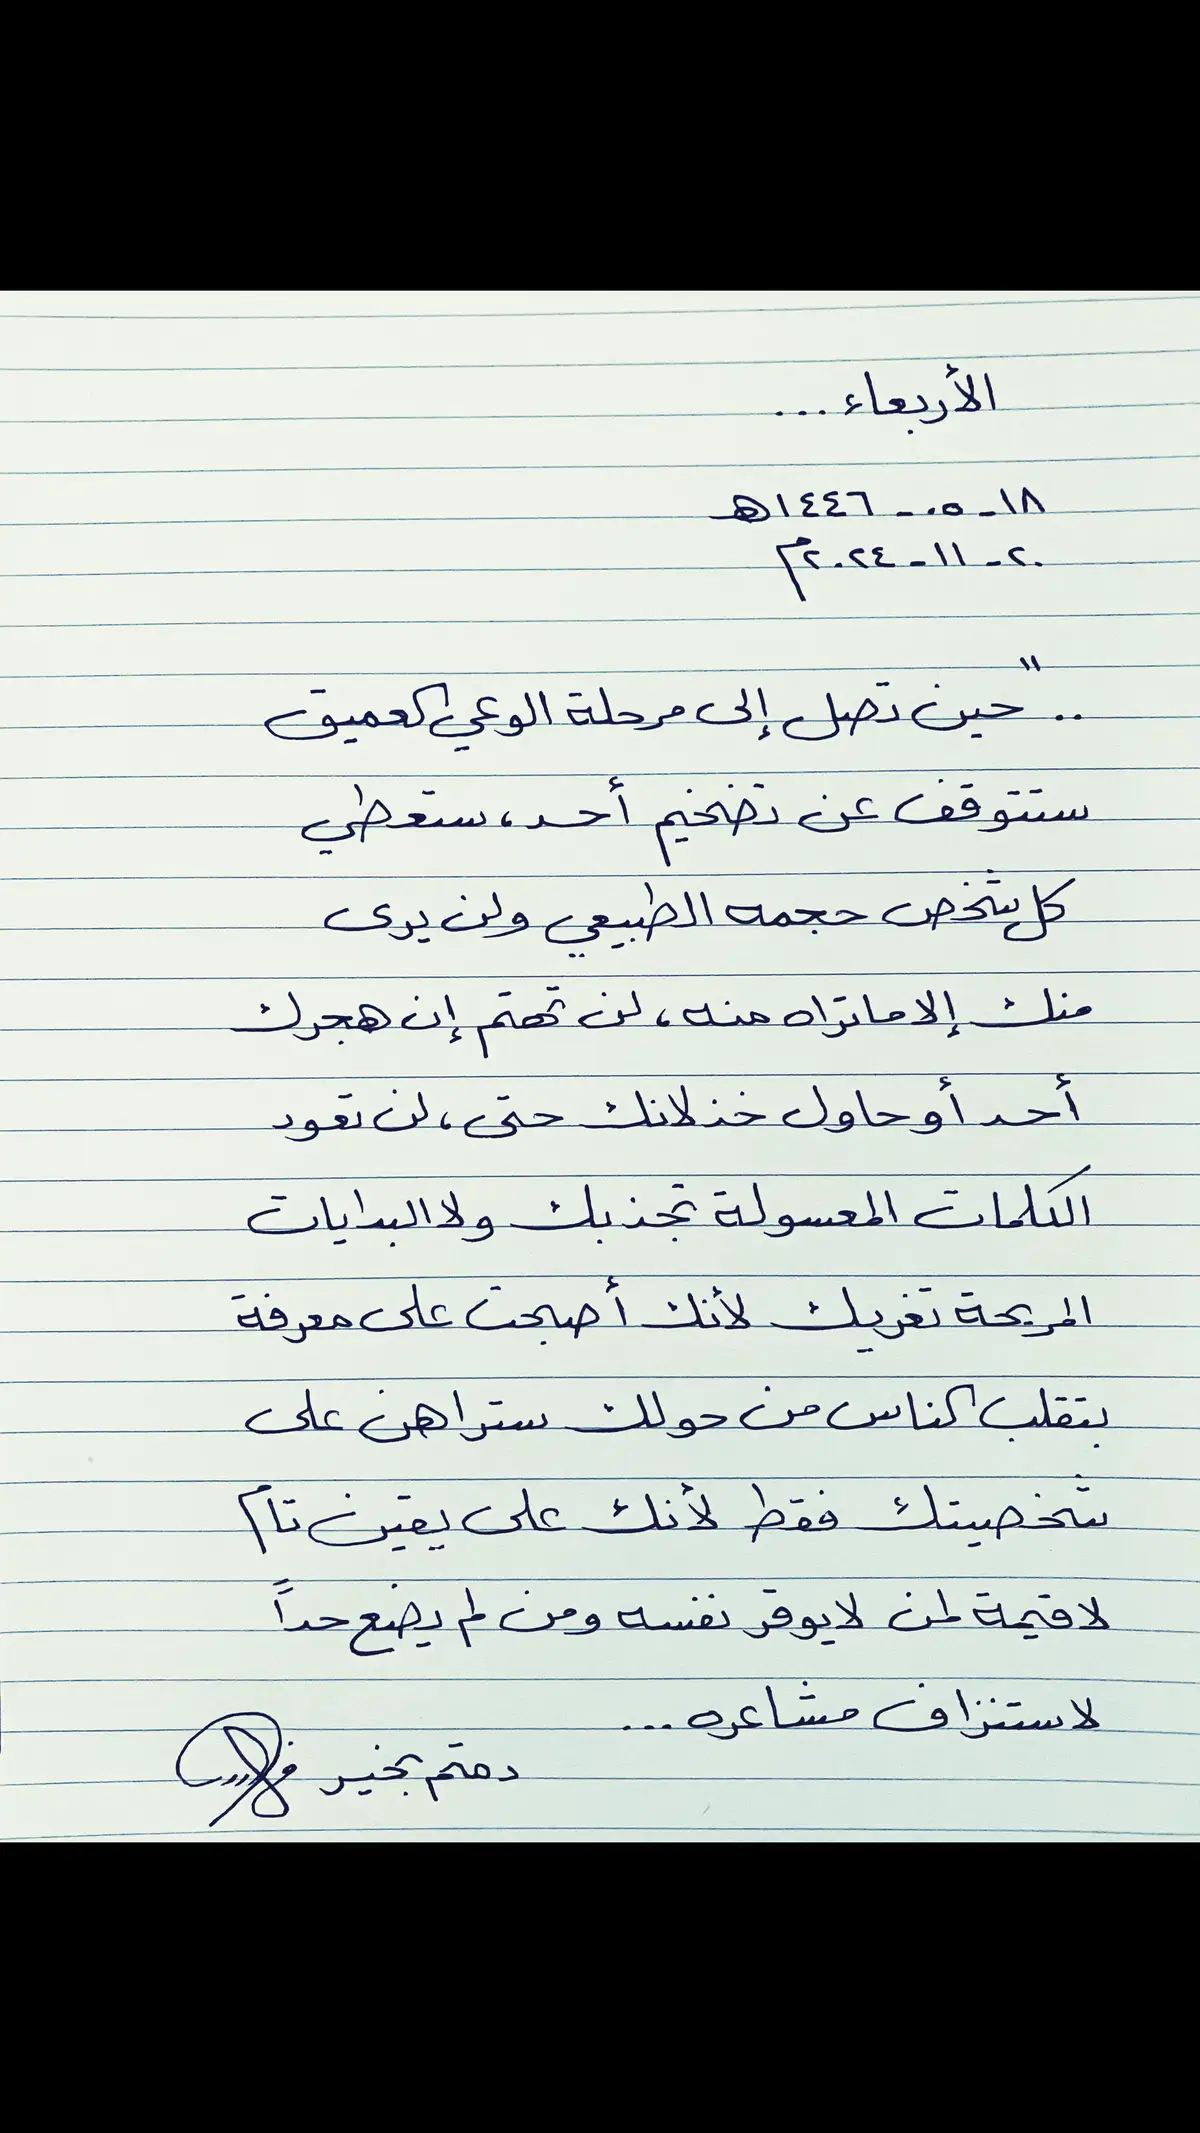 الأربعاء ...
١٨ - ٠٥ - ١٤٤٦هـ
٢٠ - ١١ - ٢٠٢٤م
.. " حين تصل إلى مرحلة الوعي العميق
ستتوقف عن تضخيم أحد، ستعطي
كل شخص حجمه الطبيعي ولن يرى
منك إلا ماتراه منه، لن تهتم إن هجرك
أحد أو حاول خذلانك حتى، لن تعود
الكلمات المعسولة تجذبك ولا البدايات
المريحة تغريك لأنك أصبحت على معرفة
بتقلب الناس من حولك ستراهن على
شخصيتك فقط لأنك على يقين تام
لا قيمة لمن لا يوقر نفسه ومن لم يضع حداً
لاستنزاف مشاعره ...
دمتم بخير